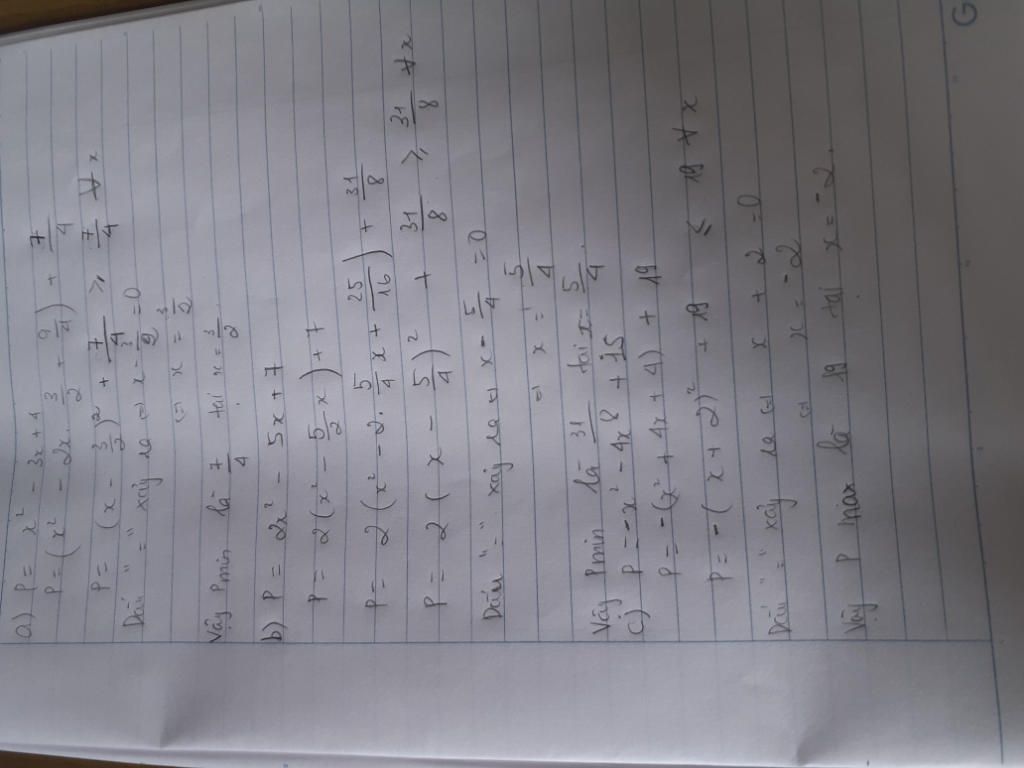 a) P = x² - 3x + 4
P = (x² - 2x. 3/2 + 9/4) + 7/4
P = (x - 3/2)² + 7/4 ≥ 7/4 ∀ x
Dấu "=" xảy ra (=) x - 3/2 = 0
(=) x = 3/2
Vậy Pmin là 7/4 tại x = 3/2.
b) P = 2x² - 5x + 7
P = 2(x² - 5/2 x) + 7
P = 2(x² - 2. 5/4 x + 25/16) + 31/8
P = 2(x - 5/4)² + 31/8 ≥ 31/8 ∀ x
Dấu "=" xảy ra (=) x - 5/4 = 0
=) x = 5/4
Vậy Pmin là 31/8 tại x = 5/4.
c) P = -x² - 4x + 15
P = -(x² + 4x + 4) + 19
P = -(x + 2)² + 19 ≤ 19 ∀ x
Dấu "=" xảy ra (=) x + 2 = 0
(=) x = -2
Vậy P max là 19 tại x = -2.
G